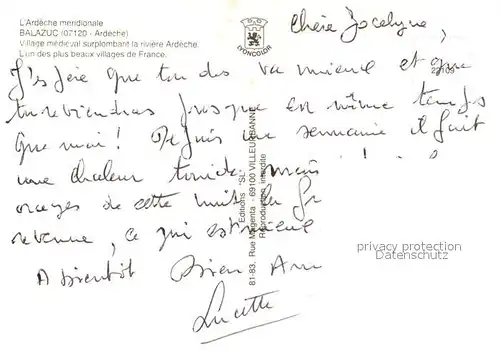 L'Ardèche méridionale
BALAZUC (07120 - Ardèche)
Village médiéval surplombant la rivière Ardèche.
L'un des plus beaux villages de France.
LYONCOLOR
Chère Jocelyne,
J'espère que ton dos va mieux et que
tu reviendras presque en même temps
que moi! Depuis une semaine il fait
une chaleur torride, mais
orages de cette nuit la
revenue, ce qui est mieux
A bientôt Bien Ami
Lucette
22109
Editions "SL"
81-83, Rue Magenta - 69100 VILLEURBANNE
Reproduction interdite
privacy protection
Datenschutz